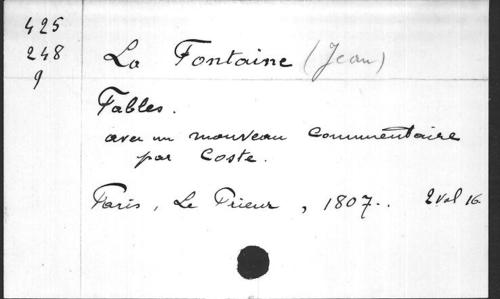 425
248
9
La Fontaine (Jean)
Fables.
avec un nouveau commentaire
par Coste.
Paris, Le Prieur, 1807.. 2 vol 16.